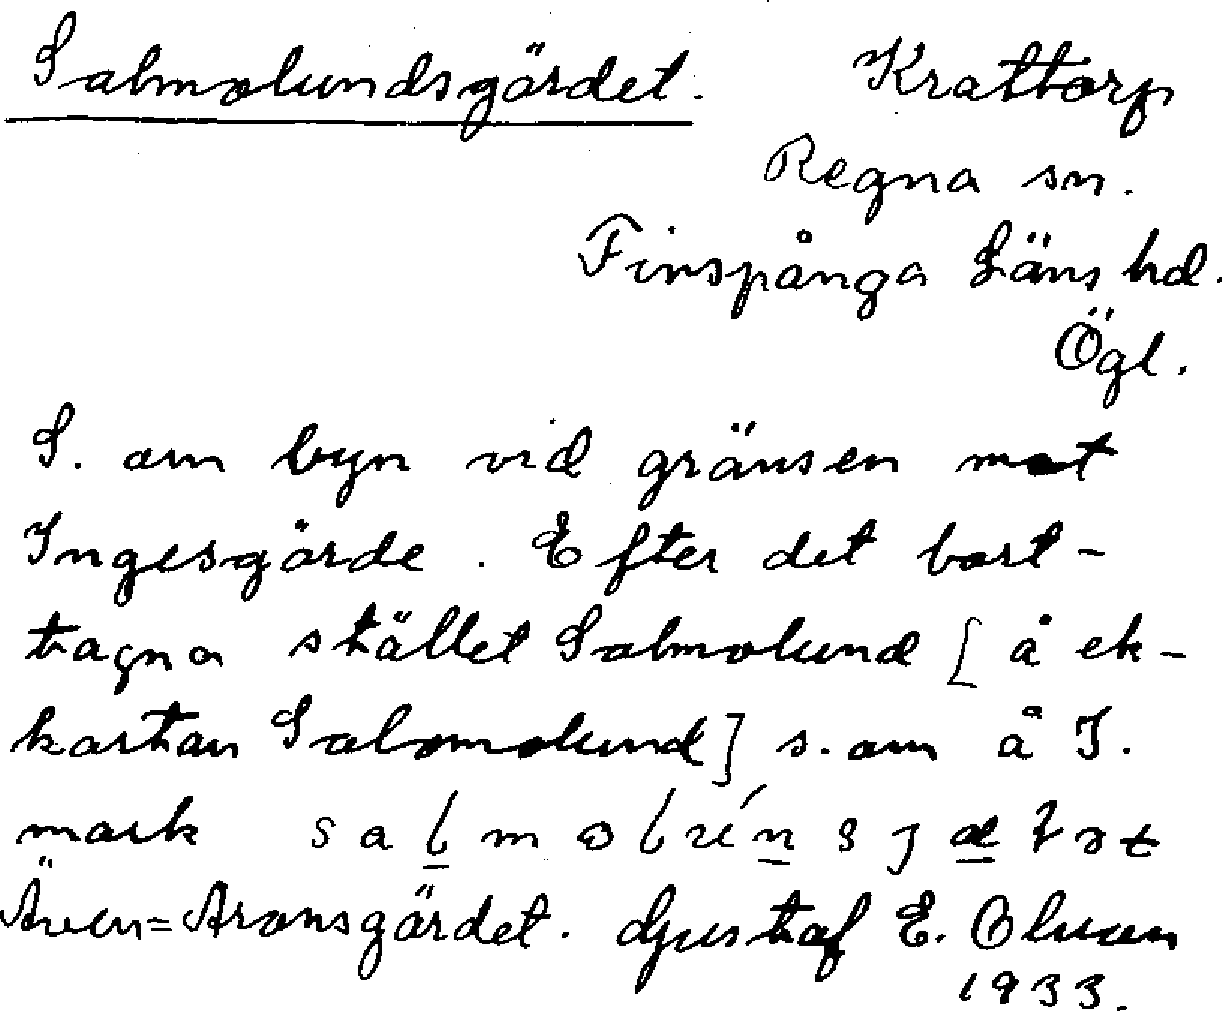 Salmolundsgärdet. Krattorp
Regna sn.
Finspånga Läns hd.
Ögl.
S. om byn vid gränsen mot
Ingesgärde. Efter det bort-
tagna stället Salmolund [å ek-
kartan Salomolund] s. om å I.
mark
Även=Aronsgärdet. Gustaf E. Olsson
1933.